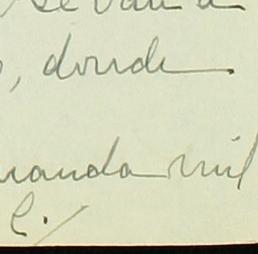 se van a
, donde
manda mil